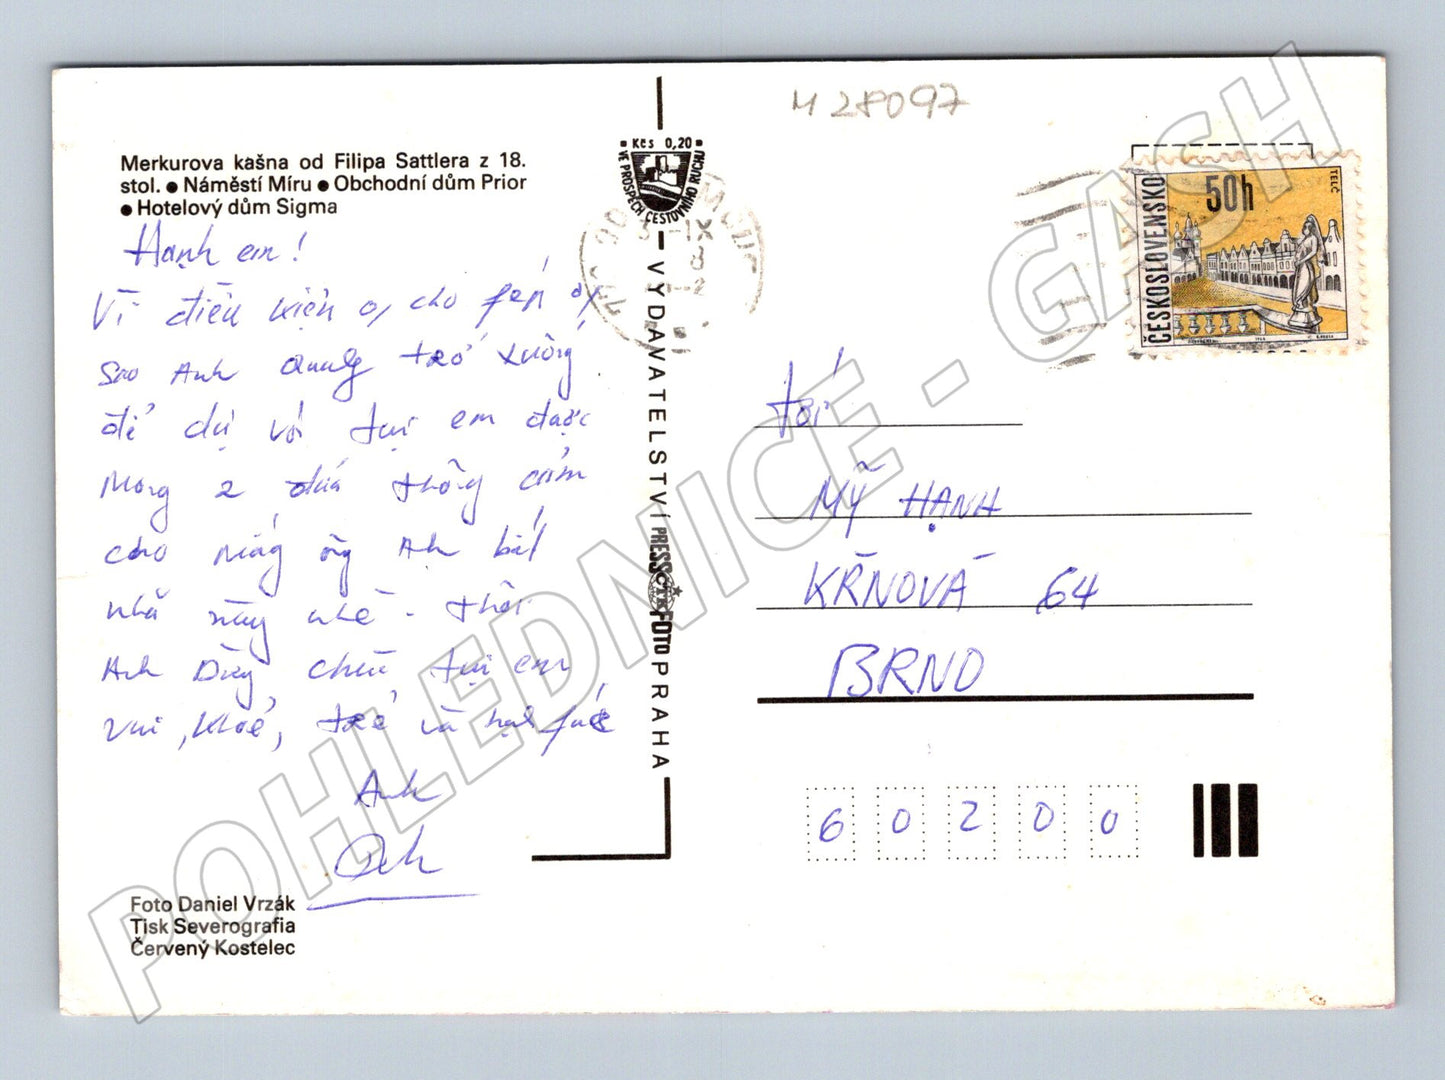 M 28097
Merkurova kašna od Filipa Sattlera z 18.
stol. ● Náměstí Míru ● Obchodní dům Prior
● Hotelový dům Sigma
Hạnh em!
Vì điều kiện o, cho phép
Sao Anh Quang trở xuống
để dự với tụi em được
Mong 2 đứa thông cảm
cho
nhã này nhé - thôi
Anh Dũng chúc tụi em
Vui, khoẻ, trẻ và hạnh phúc
Anh
Foto Daniel Vrzák
Tisk Severografia
Červený Kostelec
Kčs 0,20
VE PROSPĚCH CESTOVNÍHO RUCHU
VYDAVATELSTVÍ PRESSFOTO PRAHA
ČTK
ČESKOSLOVENSKO
50h
TELČ
tới
MỸ HẠNH
KŘNOVÁ 64
BRNO
60200
POHLEDNICE - GASH